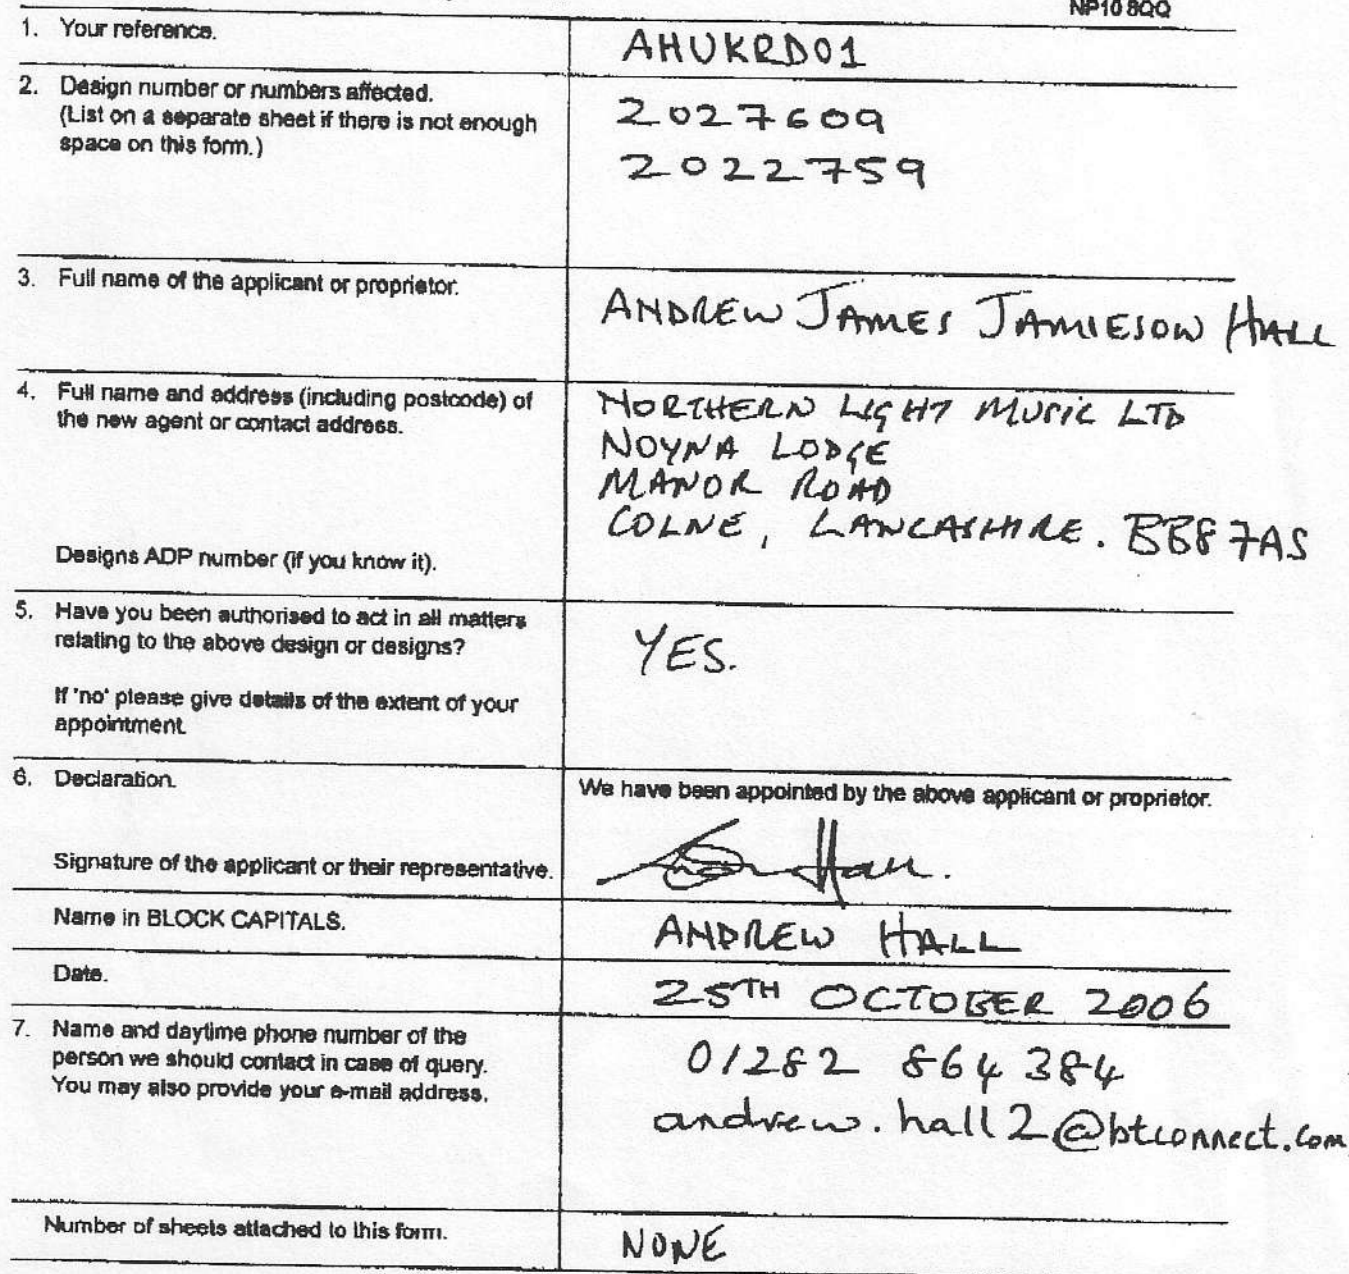 NP10 8QQ
1. Your reference.
AHUKRD01
2. Design number or numbers affected.
(List on a separate sheet if there is not enough
space on this form.)
2027609
2022759
3. Full name of the applicant or proprietor.
ANDREW JAMES JAMIESON HALL
4. Full name and address (including postcode) of
the new agent or contact address.
NORTHERN LIGHT MUSIC LTD
NOYNA LODGE
MANOR ROAD
COLNE, LANCASHIRE. BB8 7AS
Designs ADP number (if you know it).
5. Have you been authorised to act in all matters
relating to the above design or designs?
YES.
If 'no' please give details of the extent of your
appointment
6. Declaration.
We have been appointed by the above applicant or proprietor.
Signature of the applicant or their representative.
Hall.
Name in BLOCK CAPITALS.
ANDREW HALL
Date.
25TH OCTOBER 2006
7. Name and daytime phone number of the
person we should contact in case of query.
You may also provide your e-mail address.
01282 864 384
andrew.hall2@btconnect.com
Number of sheets attached to this form.
NONE